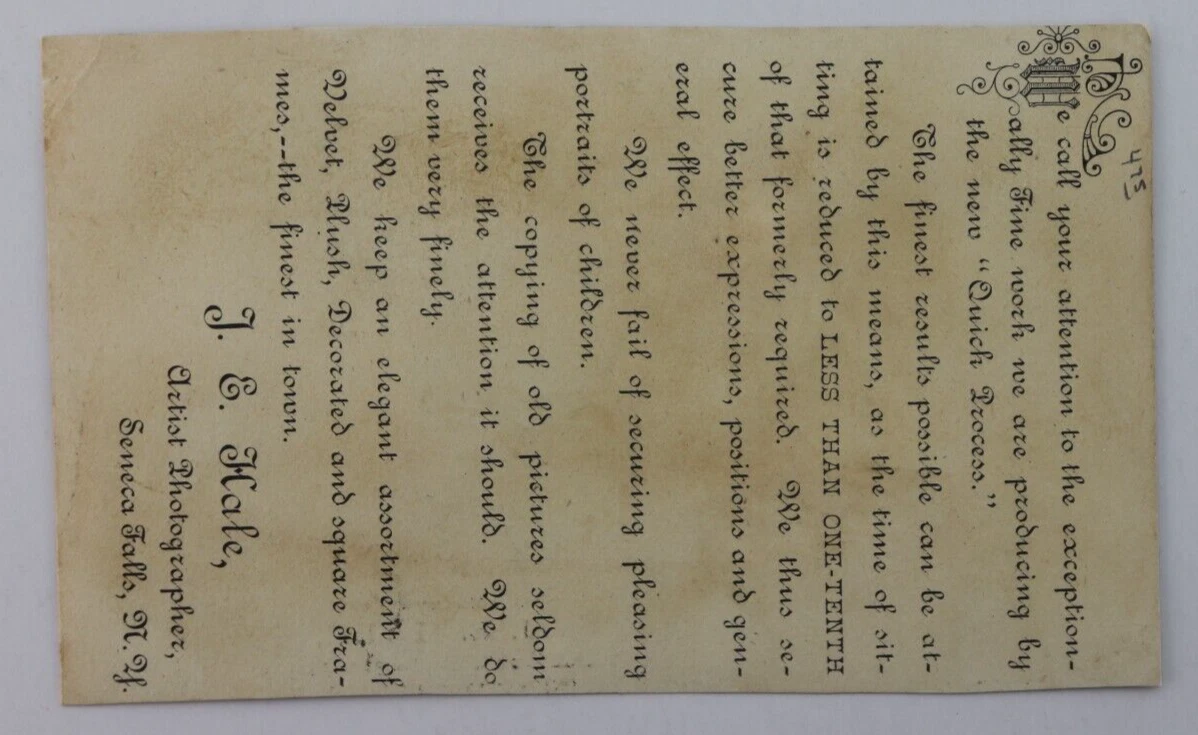 475
We call your attention to the exception-
ally Fine work we are producing by
the new “Quick Process.”
The finest results possible can be at-
tained by this means, as the time of sit-
ting is reduced to LESS THAN ONE-TENTH
of that formerly required. We thus se-
cure better expressions, positions and gen-
eral effect.
We never fail of securing pleasing
portraits of children.
The copying of old pictures seldom
receives the attention it should. We do
them very finely.
We keep an elegant assortment of
Velvet, Plush, Decorated and square Fra-
mes,--the finest in town.
J. E. Hale,
Artist Photographer,
Seneca Falls, N. Y.